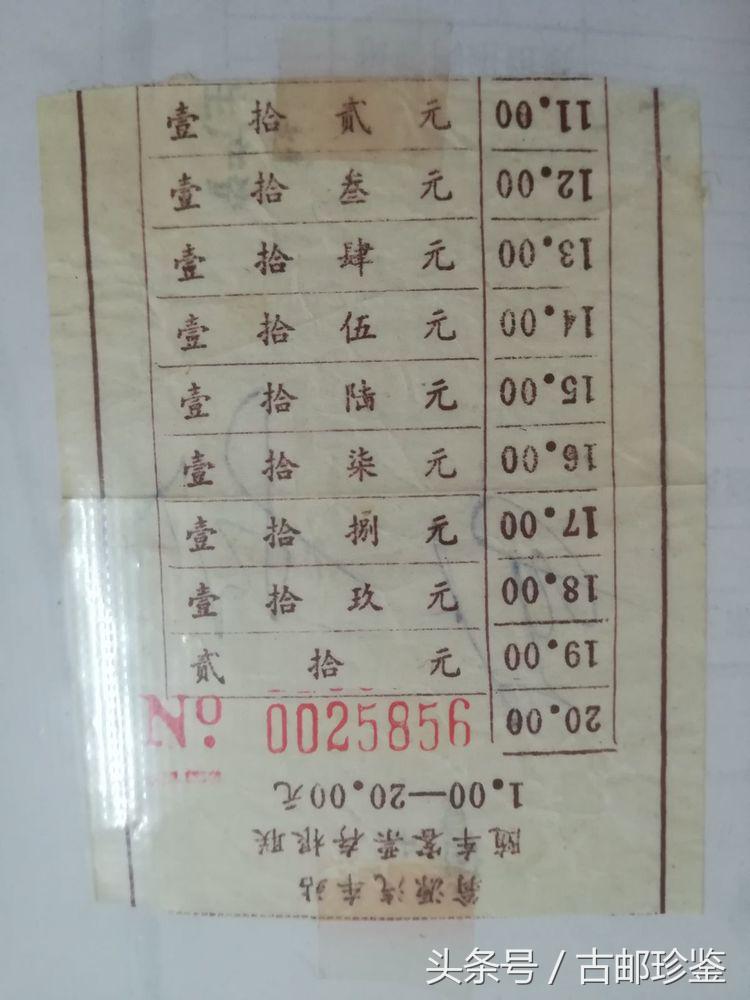 壹拾贰元 11.00
壹拾叁元 12.00
壹拾肆元 13.00
壹拾伍元 14.00
壹拾陆元 15.00
壹拾柒元 16.00
壹拾捌元 17.00
壹拾玖元 18.00
贰拾元 19.00
20.00
№ 0025856
1.00—20.00元
随车客票存根联
翁源汽车站
头条号 / 古邮珍鉴